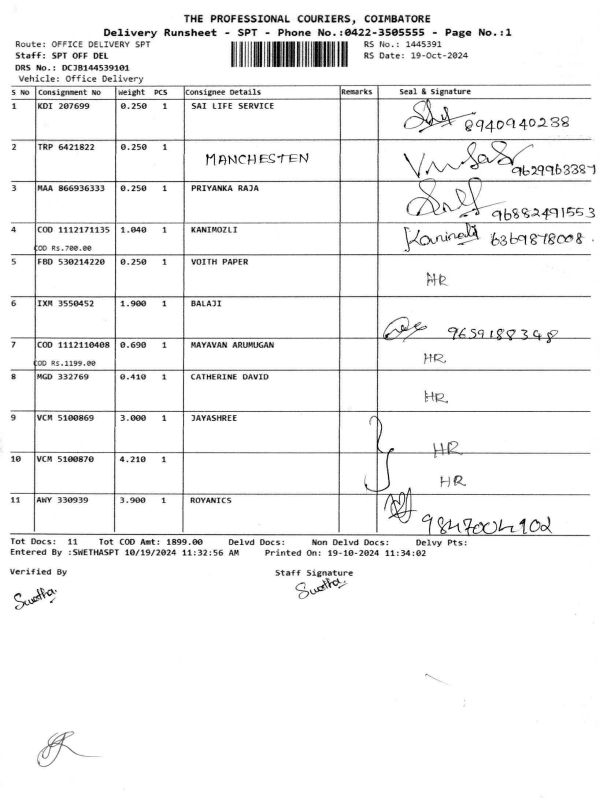 THE PROFESSIONAL COURIERS, COIMBATORE
Delivery Runsheet - SPT - Phone No.:0422-3505555 - Page No.:1
Route: OFFICE DELIVERY SPT RS No.: 1445391
Staff: SPT OFF DEL RS Date: 19-Oct-2024
DRS No.: DCJB144539101
Vehicle: Office Delivery
S No Consignment No Weight PCS Consignee Details Remarks Seal & Signature
1 KDI 207699 0.250 1 SAI LIFE SERVICE 8940940238
2 TRP 6421822 0.250 1 MANCHESTEN 9629963387
3 MAA 866936333 0.250 1 PRIYANKA RAJA 96882491553
4 COD 1112171135 1.040 1 KANIMOZLI 6369878008.
COD Rs.700.00
5 FBD 530214220 0.250 1 VOITH PAPER HR
6 IXM 3550452 1.900 1 BALAJI 9659188348
7 COD 1112110408 0.690 1 MAYAVAN ARUMUGAN HR
COD Rs.1199.00
8 MGD 332769 0.410 1 CATHERINE DAVID HR
9 VCM 5100869 3.000 1 JAYASHREE HR
10 VCM 5100870 4.210 1 HR
11 AWY 330939 3.900 1 ROYANICS 9847004902
Tot Docs: 11 Tot COD Amt: 1899.00 Delvd Docs: Non Delvd Docs: Delvy Pts:
Entered By :SWETHASPT 10/19/2024 11:32:56 AM Printed On: 19-10-2024 11:34:02
Verified By Staff Signature
Swetha. Swetha.